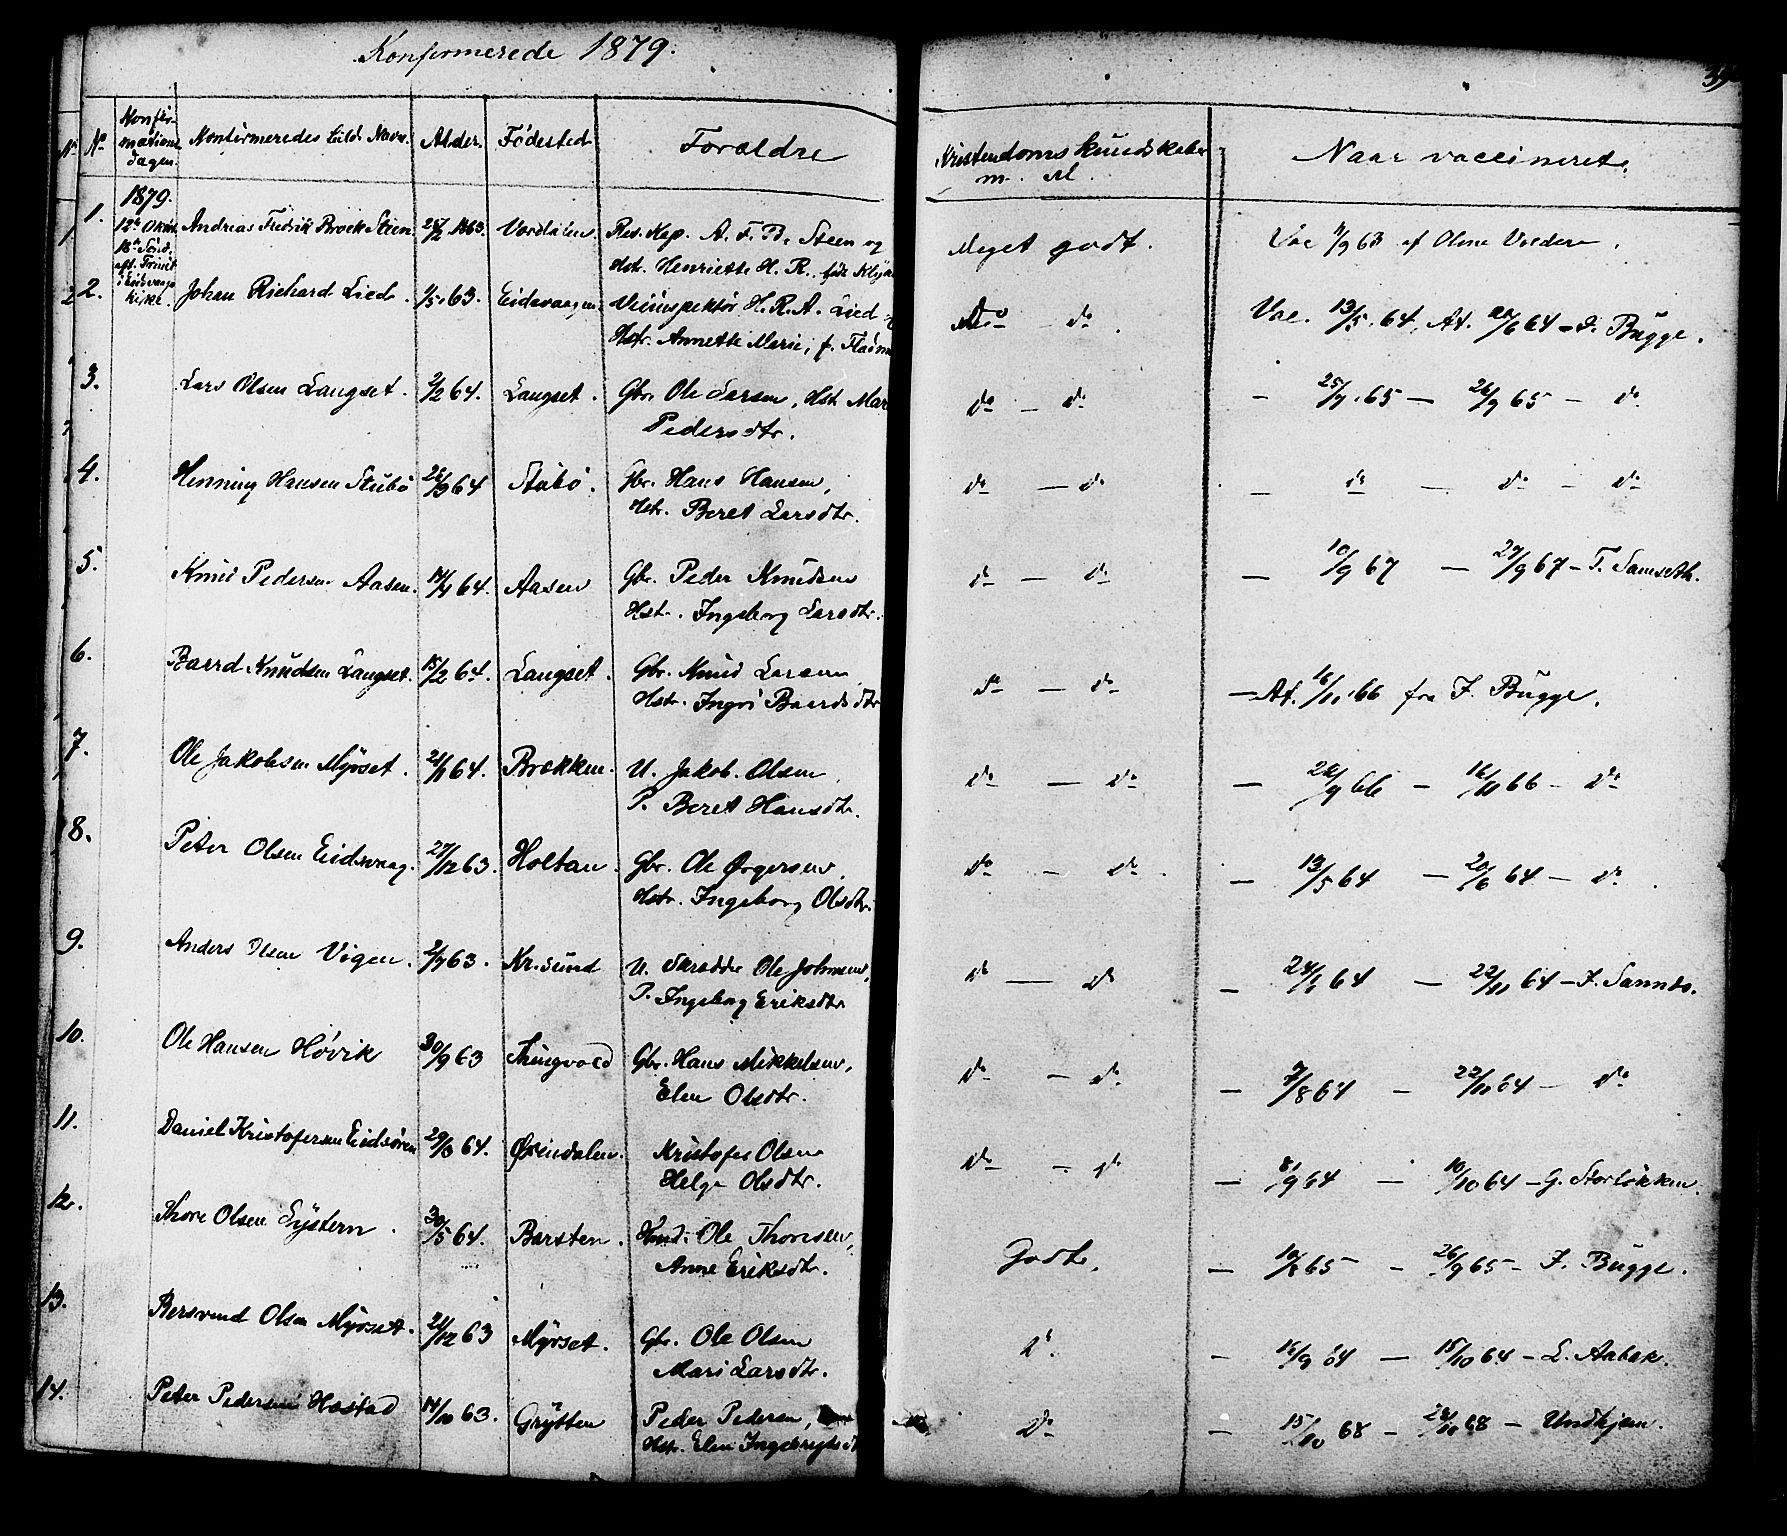 Konfirmerede 1879.
No No Konfir-mations dagen. Konfirmeredes fulde Navn. Alder. Fødested Forældre Kristendoms kundskaber m. M. Naar vaccineret.
1879.
12te Oktbr.
18de Sønd.
eft. Trinit.
i Eidsvaags
kirke.
1. Andreas Fredrik Brock Steen 1863. Res. Kap. A. F. B. Steen og
Hstr. Henriette H. R., født
Meget godt. Vac 11/9 63 af
2. Johan Richard Lied. 1/5 63. Eidsvaagen H. R. A. Lied
Hstr. Annette Marie, f.
do do. Vac. 13/5 64, At. 20/6 64 - F. Bugge.
3. Lars Olsen Langset. 2/2 64. Langset. Gbr. Ole Larsen, Hst. Mar
Pedersdtr.
do - do - 25/7 65 - 26/9 65 - do
4. Henning Hansen Stubø 64 Stubø. Gbr. Hans Hansen,
Hstr. Beret Larsdtr.
do - do - do - do - do
5. Knud Pedersen Aasen. 64. Aasen Gbr. Peder Knudsen
Hstr. Ingeborg Larsdtr.
do - do - 10/9 67 - 27/9 67 - T. Samseth.
6. Baard Knudsen Langset. 15/2 64. Langset. Gbr. Knud Larsen
Hstr. Ingri Baardsdtr
do - do - At. 16/11 66 fra F. Bugge.
7. Ole Jakobsen Myrset. 64. Brekken. U. Jakob Olsen
P. Beret Hansdtr.
do - do - 66 - 16/11 66 - do
8. Peter Olsen Eidsvaag. 27/12 63. Holtan. Gbr. Ole Ørgersen,
Hstr. Ingeborg Olsdtr.
do - do. - 13/5 64 - 20/6 64 - do.
9. Anders Olsen Vigen. 2/7 63. Kr.sund U. Ole Johnsen,
P. Ingeborg Eriksdtr
do - do - 64 - 22/11 64 - F.
10. Ole Hansen Høvik 30/9 63 Thingvold Gbr. Hans Mikkelsen,
Elen Olsdtr.
do - do - 7/8 64 - 64 - do
11. Daniel Kristofersen Eidsøren 64. Øxendalen. Kristofer Olsen
Helge Olsdtr.
do - do - 8/9 64 - 10/10 64 - G. Storløkken.
12. Thore Olsen 30/5 64. Barsten. Ole Thoresen,
Anne Eriksdtr.
Godt. - 65 - 26/9 65 - F. Bugge.
13. Bersvend Olsen Myrset. 21/12 63 Myrset. Gbr. Ole Olsen
Mari Larsdtr.
do - 16/9 64 - 15/10 64 - L. Aabak.
14. Peter Pedersen Hastad 14/10 63. Grytten Peder Pedersen,
Hstr. Elen Ingebrigtsd
do - 15/10 68 - 68 - Undhjem.